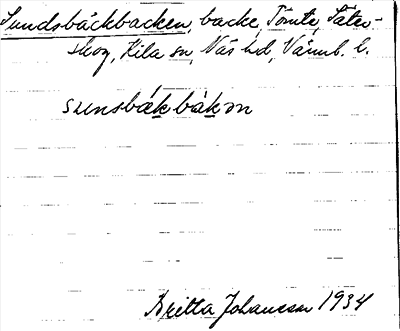 Sundsbäckbacken, backe, Tomta, Säter-
skog, Kila sn, Näs hd, Värml. l.
sunsbækbákən
Britta Johansson 1934